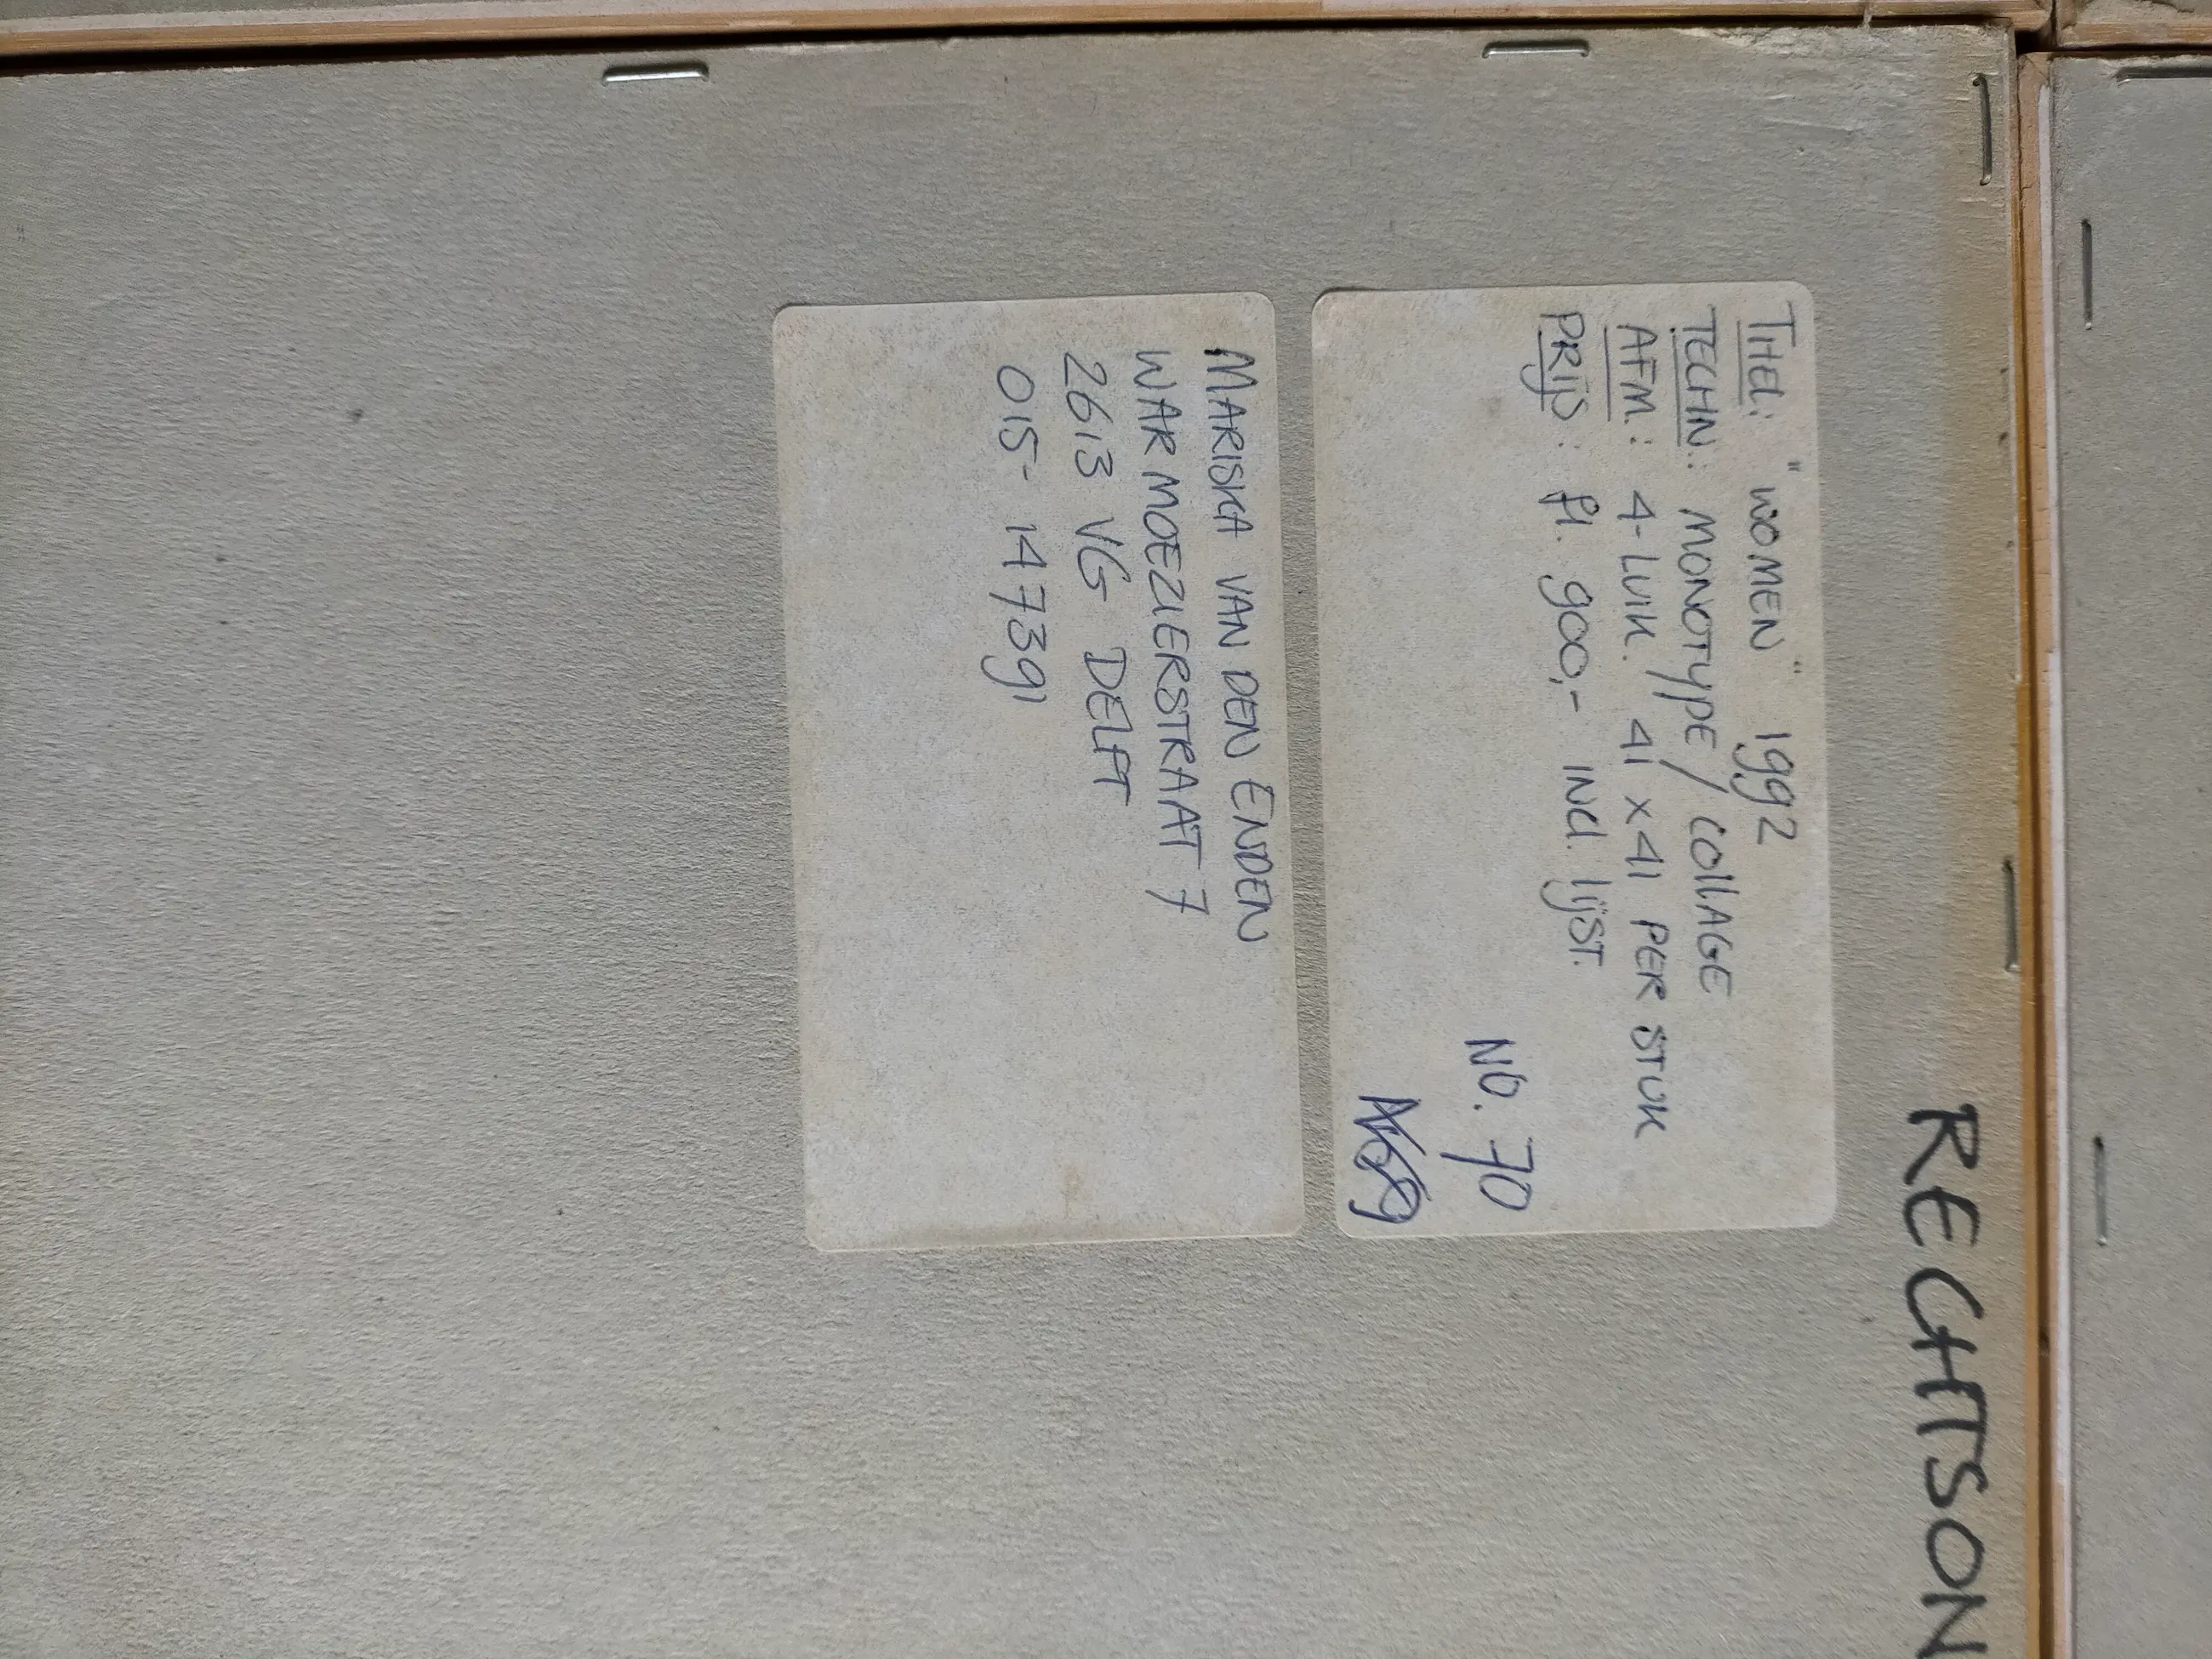 RECHTSON
TITEL: "WOMEN" 1992
TECHN.: MONOTYPE / COLLAGE
AFM.: 4-LUIK. 41 x 41 PER STUK
PRIJS: fl. 900,- INCL. LIJST.
NO. 70
MARISKA VAN DEN ENDEN
WARMOEZIERSTRAAT 7
2613 VG DELFT
015-147391